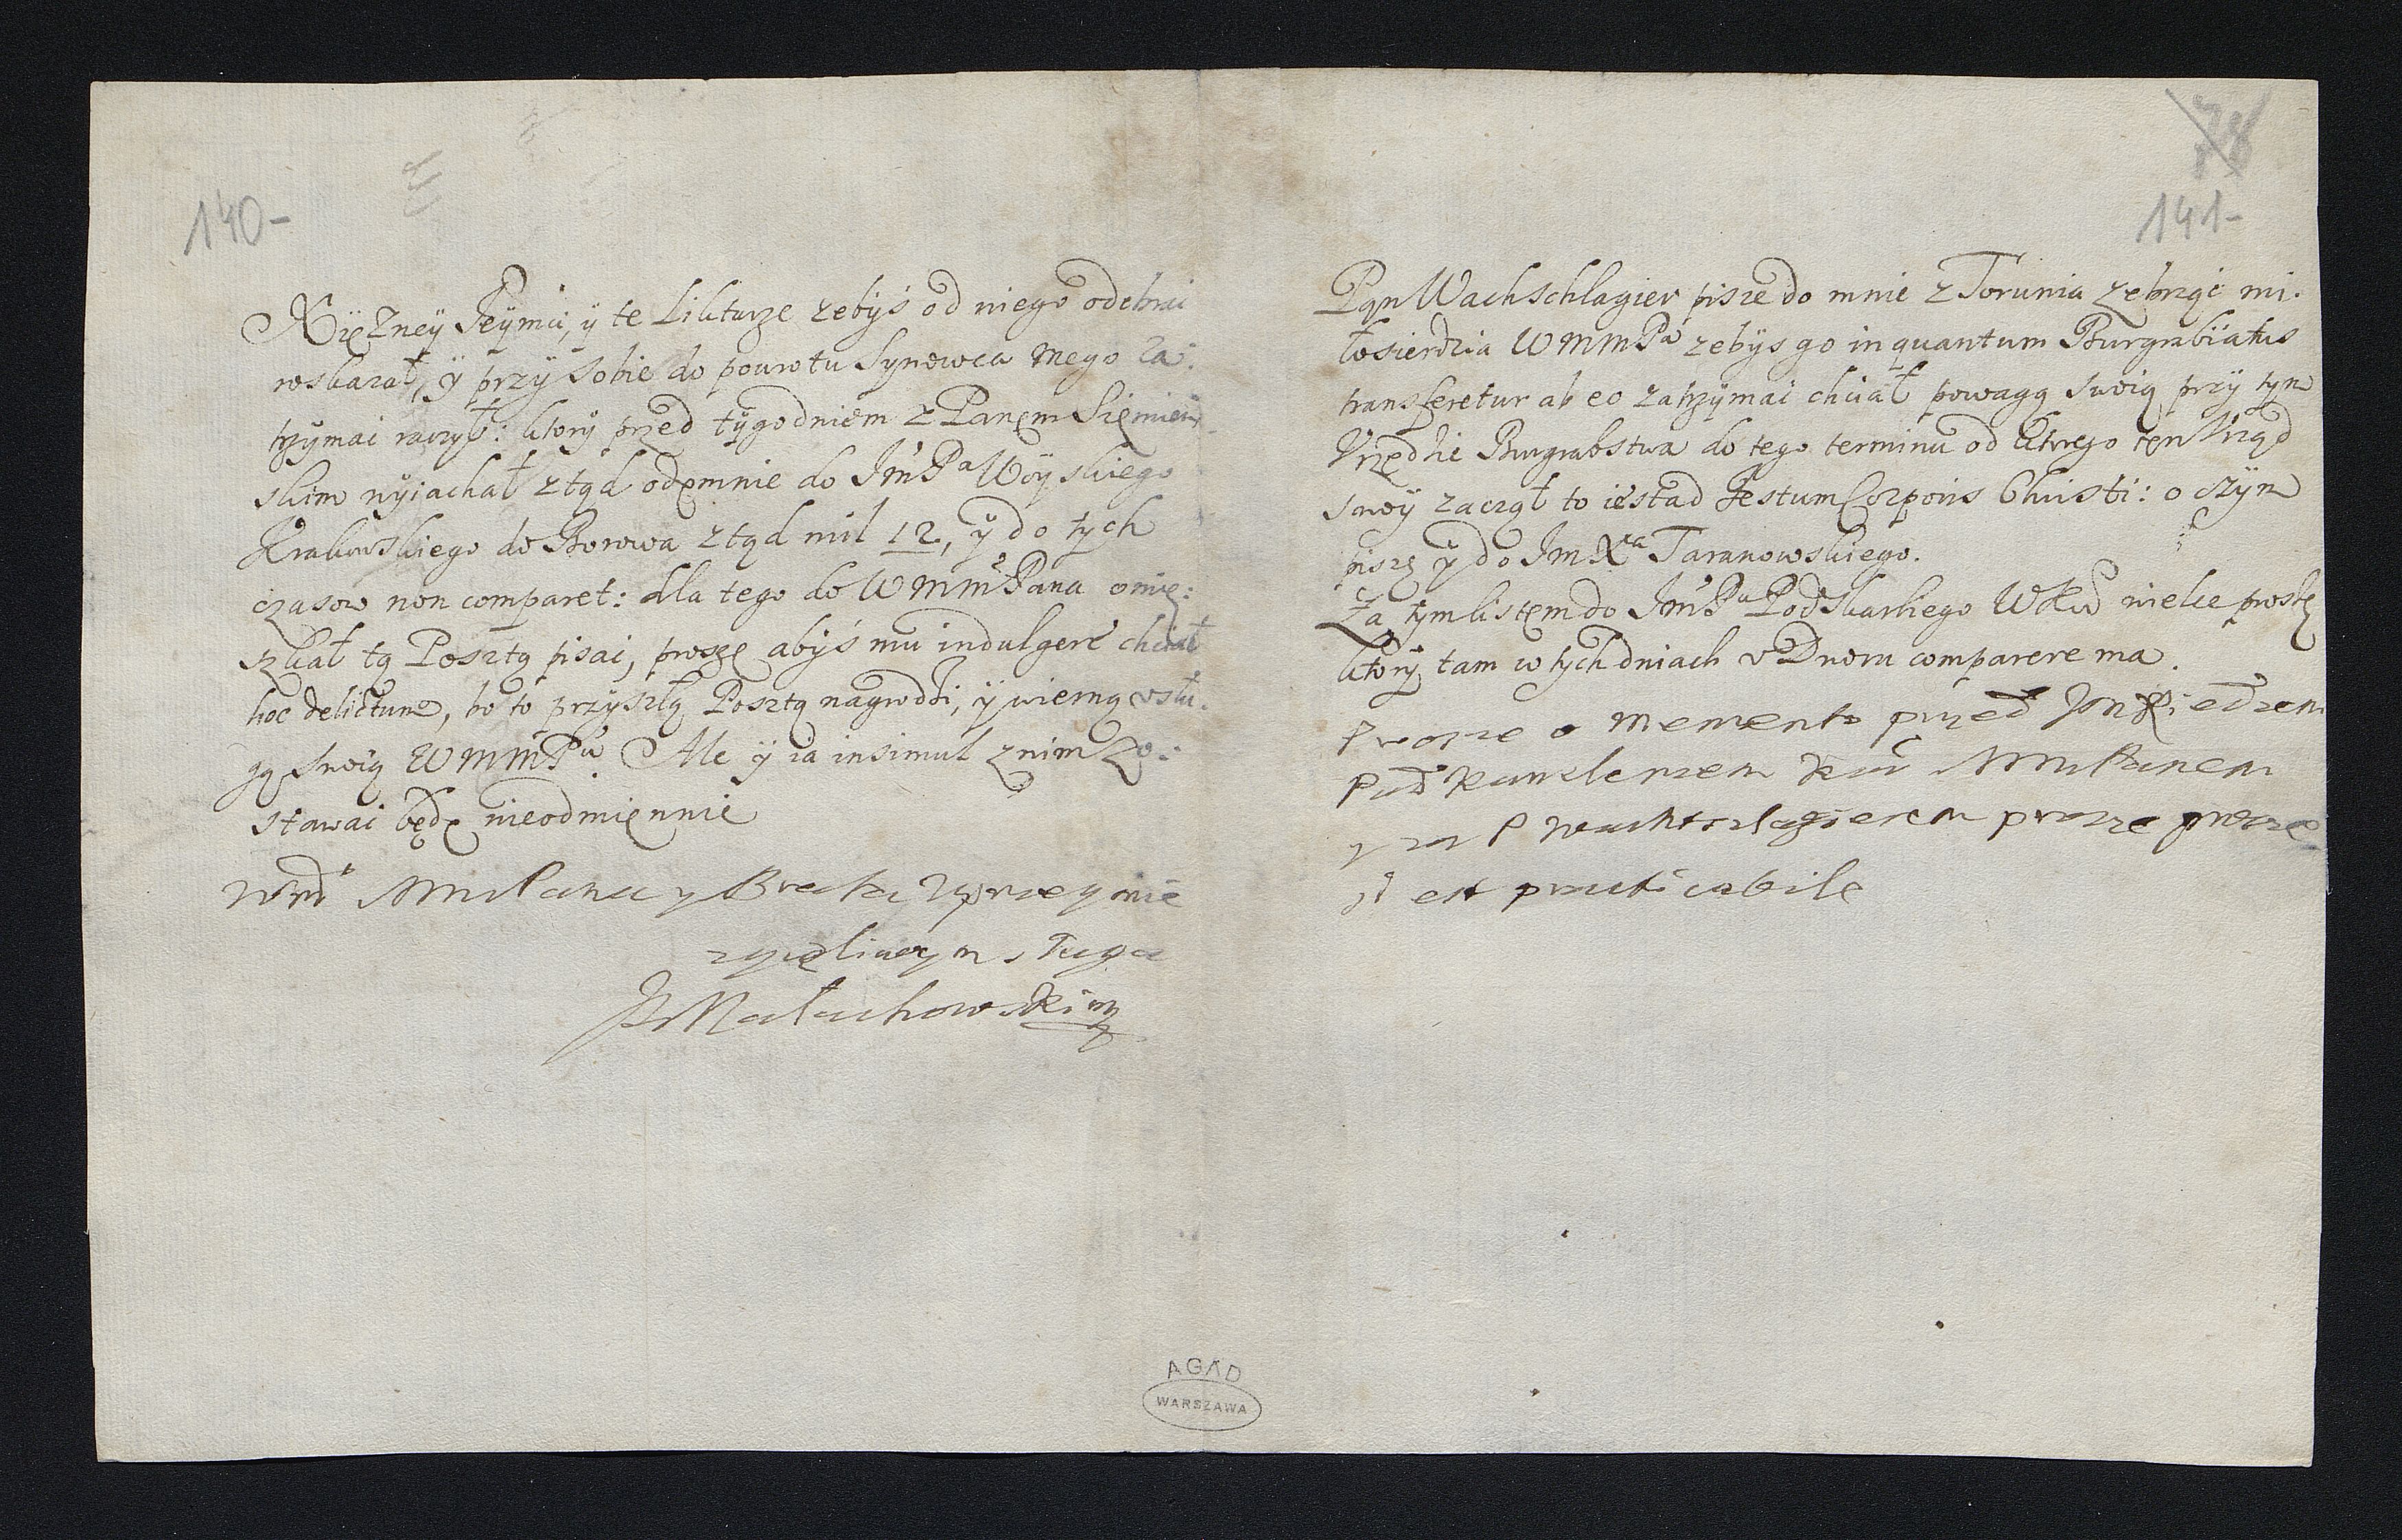 140-
Xiężney Jeymci, y te Likturze zebyś od niego odebrai
roskazał, y przy sobie do powrotu Synowca mego za:
trzymai raczył: ktory przed tygodniem z Panem
skim wyiachał ztąd odemnie do Jm Pa Woyskiego
Krakowskiego do Borowa ztąd mil 12, y do tych
czasow non comparet: dla tego do WMMPana omie:
szkał tą Posztą pisai, proszę abyś mu indulgere chciał
hoc delictum, bo to przyszłą Posztą nagrodzi, y wierną vsłu:
gą swoią WMMPu. Ale y ia insimul znim zo:
stawai będę nieodmiennie
WMM Pana y Brata Vprzeymie
zyczliwym sługa
JMałachowski mp
78
141-
Pąn Wachschlagier pisze do mnie z Torunia zebrząc mi:
łosierdzia WMMPa zebys go inquantum Burgrabiatus
transferetur ab eo zatrzymai chciał powagą swoią przy tym
Vrzędzie Burgrabstwa do tego terminu od ktorego ten Vrząd
swoy zaczął to iest ad Festum Corporis Christi: o czym
piszę y do Jm Xa Taranowskiego.
Za tym listem do Jm Pa Podskarbiego WKo wielce proszę
ktory tam w tych dniach v Dworu comparere ma.
Prosze o memento przed Jm
Pod Kanclerzem Ko MM Panem
y za P Wachtszlagierem prosze prosze
si est practicabile
AGAD
WARSZAWA